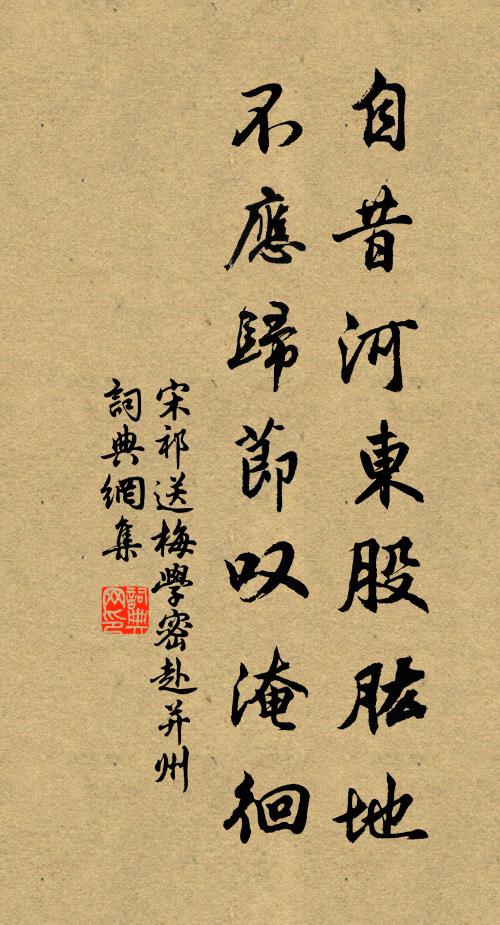 自昔河東股肱地
不應歸節叹淹徊
宋祁送梅學密赴并州
詞典網集
詞典网印